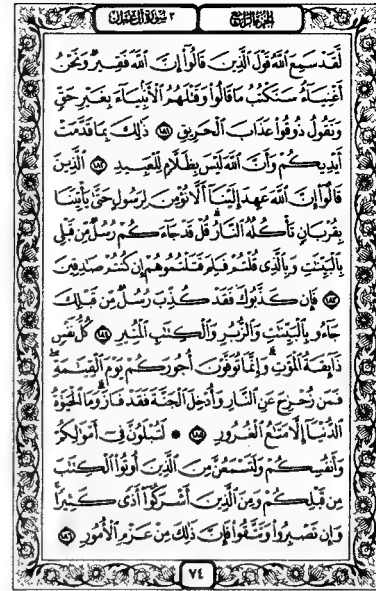 الجزء الرابع
٣ سورة آل عمران
لَّقَدْ سَمِعَ ٱللَّهُ قَوْلَ ٱلَّذِينَ قَالُوٓا۟ إِنَّ ٱللَّهَ فَقِيرٌ وَنَحْنُ
أَغْنِيَآءُ سَنَكْتُبُ مَا قَالُوا۟ وَقَتْلَهُمُ ٱلْأَنۢبِيَآءَ بِغَيْرِ حَقٍّ
وَنَقُولُ ذُوقُوا۟ عَذَابَ ٱلْحَرِيقِ ١٨١ ذَٰلِكَ بِمَا قَدَّمَتْ
أَيْدِيكُمْ وَأَنَّ ٱللَّهَ لَيْسَ بِظَلَّامٍ لِّلْعَبِيدِ ١٨٢ ٱلَّذِينَ
قَالُوٓا۟ إِنَّ ٱللَّهَ عَهِدَ إِلَيْنَآ أَلَّا نُؤْمِنَ لِرَسُولٍ حَتَّىٰ يَأْتِيَنَا
بِقُرْبَانٍ تَأْكُلُهُ ٱلنَّارُ قُلْ قَدْ جَآءَكُمْ رُسُلٌ مِّن قَبْلِى
بِٱلْبَيِّنَٰتِ وَبِٱلَّذِى قُلْتُمْ فَلِمَ قَتَلْتُمُوهُمْ إِن كُنتُمْ صَٰدِقِينَ
١٨٣ فَإِن كَذَّبُوكَ فَقَدْ كُذِّبَ رُسُلٌ مِّن قَبْلِكَ
جَآءُو بِٱلْبَيِّنَٰتِ وَٱلزُّبُرِ وَٱلْكِتَٰبِ ٱلْمُنِيرِ ١٨٤ كُلُّ نَفْسٍ
ذَآئِقَةُ ٱلْمَوْتِ وَإِنَّمَا تُوَفَّوْنَ أُجُورَكُمْ يَوْمَ ٱلْقِيَٰمَةِ
فَمَن زُحْزِحَ عَنِ ٱلنَّارِ وَأُدْخِلَ ٱلْجَنَّةَ فَقَدْ فَازَ وَمَا ٱلْحَيَوٰةُ
ٱلدُّنْيَآ إِلَّا مَتَٰعُ ٱلْغُرُورِ ١٨٥ ۞ لَتُبْلَوُنَّ فِىٓ أَمْوَٰلِكُمْ
وَأَنفُسِكُمْ وَلَتَسْمَعُنَّ مِنَ ٱلَّذِينَ أُوتُوا۟ ٱلْكِتَٰبَ
مِن قَبْلِكُمْ وَمِنَ ٱلَّذِينَ أَشْرَكُوٓا۟ أَذًى كَثِيرًا
وَإِن تَصْبِرُوا۟ وَتَتَّقُوا۟ فَإِنَّ ذَٰلِكَ مِنْ عَزْمِ ٱلْأُمُورِ ١٨٦
٧٤